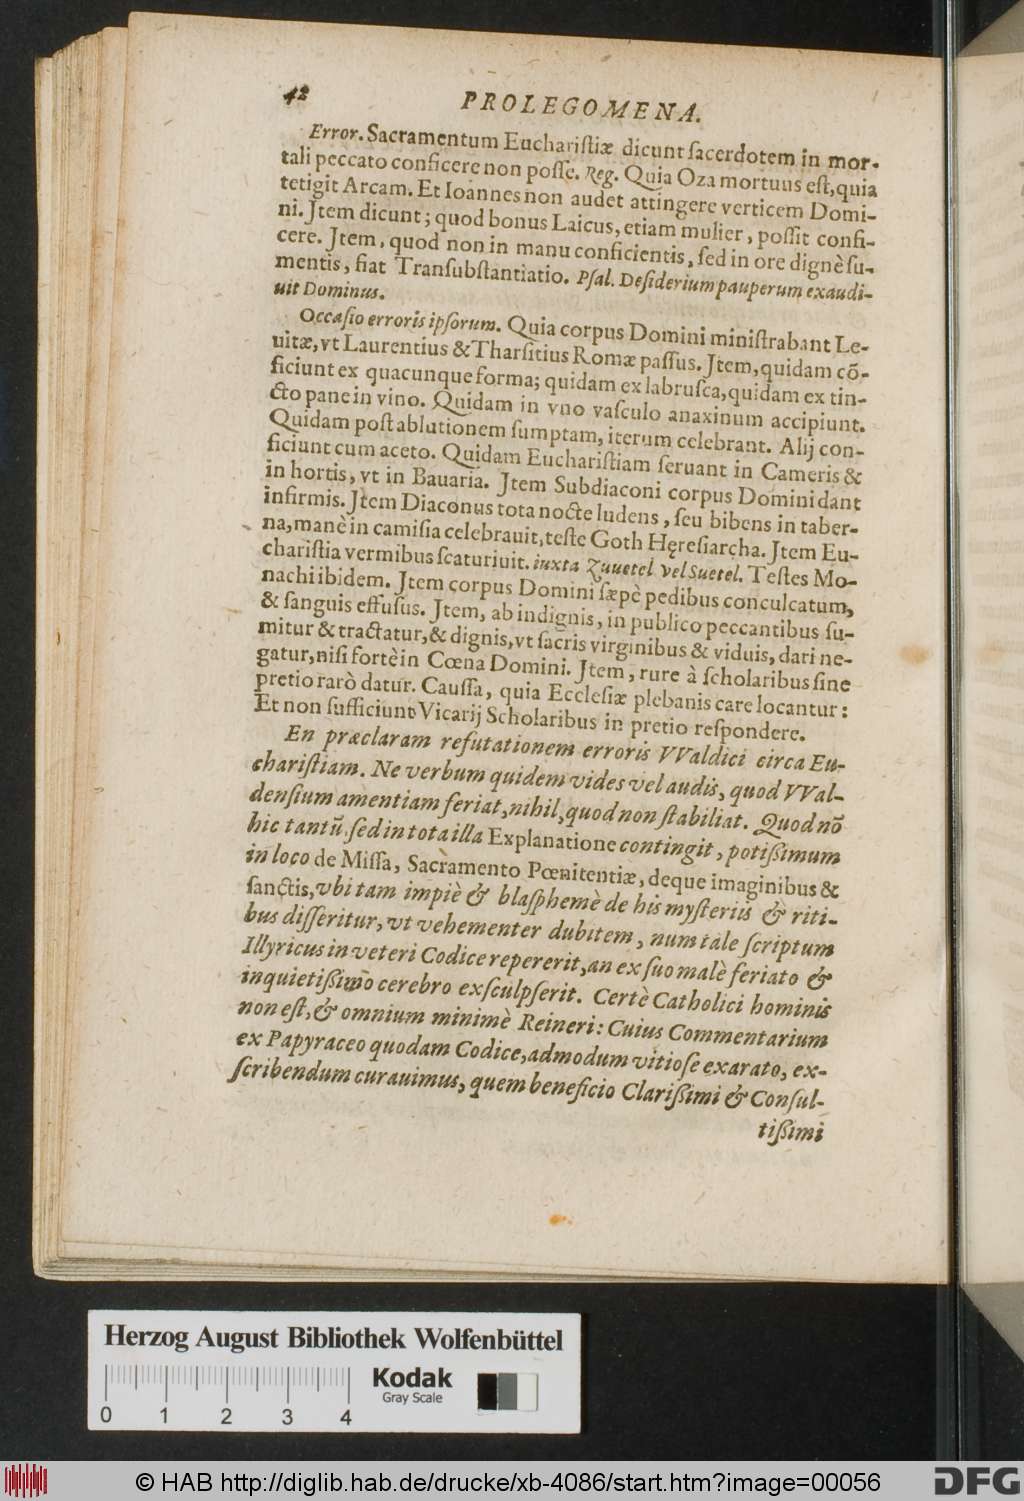 42 PROLEGOMENA.
Error. Sacramentum Euchariſtiæ dicunt ſacerdotem in mor-
tali peccato conficere non poſſe. Reg. Quia Oza mortuus eſt, quia
tetigit Arcam. Et Ioannes non audet attingere verticem Domi-
ni. Jtem dicunt; quod bonus Laicus, etiam mulier, poſſit confi-
cere. Jtem, quod non in manu conficientis, ſed in ore dignè ſu-
mentis, fiat Tranſubſtantiatio. Pſal. Deſiderium pauperum exaudi-
uit Dominus.
Occaſio erroris ipſorum. Quia corpus Domini miniſtrabant Le-
uitæ, vt Laurentius & Tharſitius Romæ paſſus. Jtem, quidam cō-
ficiunt ex quacunque forma; quidam ex labruſca, quidam ex tin-
cto pane in vino. Quidam in vno vaſculo anaxinum accipiunt.
Quidam poſt ablutionem ſumptam, iterum celebrant. Alij con-
ficiunt cum aceto. Quidam Euchariſtiam ſeruant in Cameris &
in hortis, vt in Bauaria. Jtem Subdiaconi corpus Domini dant
infirmis. Jtem Diaconus tota nocte ludens, ſeu bibens in taber-
na, manè in camiſia celebrauit, teſte Goth Hęreſiarcha. Jtem Eu-
chariſtia vermibus ſcaturiuit. iuxta Zuuetel vel Suetel. Teſtes Mo-
nachi ibidem. Jtem corpus Domini ſæpè pedibus conculcatum,
& ſanguis effuſus. Jtem, ab indignis, in publico peccantibus ſu-
mitur & tractatur, & dignis, vt ſacris virginibus & viduis, dari ne-
gatur, niſi fortè in Cœna Domini. Jtem, rure à ſcholaribus ſine
pretio rarò datur. Cauſſa, quia Eccleſiæ plebanis care locantur:
Et non ſufficiunt Vicarij Scholaribus in pretio reſpondere.
En præclaram refutationem erroris VValdici circa Eu-
chariſtiam. Ne verbum quidem vides vel audis, quod VVal-
denſium amentiam feriat, nihil, quod non ſtabiliat. Quod nō
hic tantũ ſed in tota illa Explanatione contingit, potißimum
in loco de Miſſa, Sacramento Pœnitentiæ, deque imaginibus &
ſanctis, vbi tam impiè & blaſphemè de his myſteriis & riti-
bus diſſeritur, vt vehementer dubitem, num tale ſcriptum
Illyricus in veteri Codice repererit, an ex ſuo malè feriato &
inquietißimo cerebro exſculpſerit. Certè Catholici hominis
non eſt, & omnium minimè Reineri: Cuius Commentarium
ex Papyraceo quodam Codice, admodum vitioſe exarato, ex-
ſcribendum curauimus, quem beneficio Clarißimi & Conſul-
tißimi
Herzog August Bibliothek Wolfenbüttel
Kodak
Gray Scale
0 1 2 3 4
© HAB http://diglib.hab.de/drucke/xb-4086/start.htm?image=00056
DFG